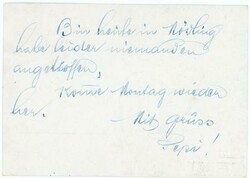 Bin heite in Mödling
habe leider niemanden
angetroffen,
Komme Montag wieder
her.
Mit gruss
Pepi!